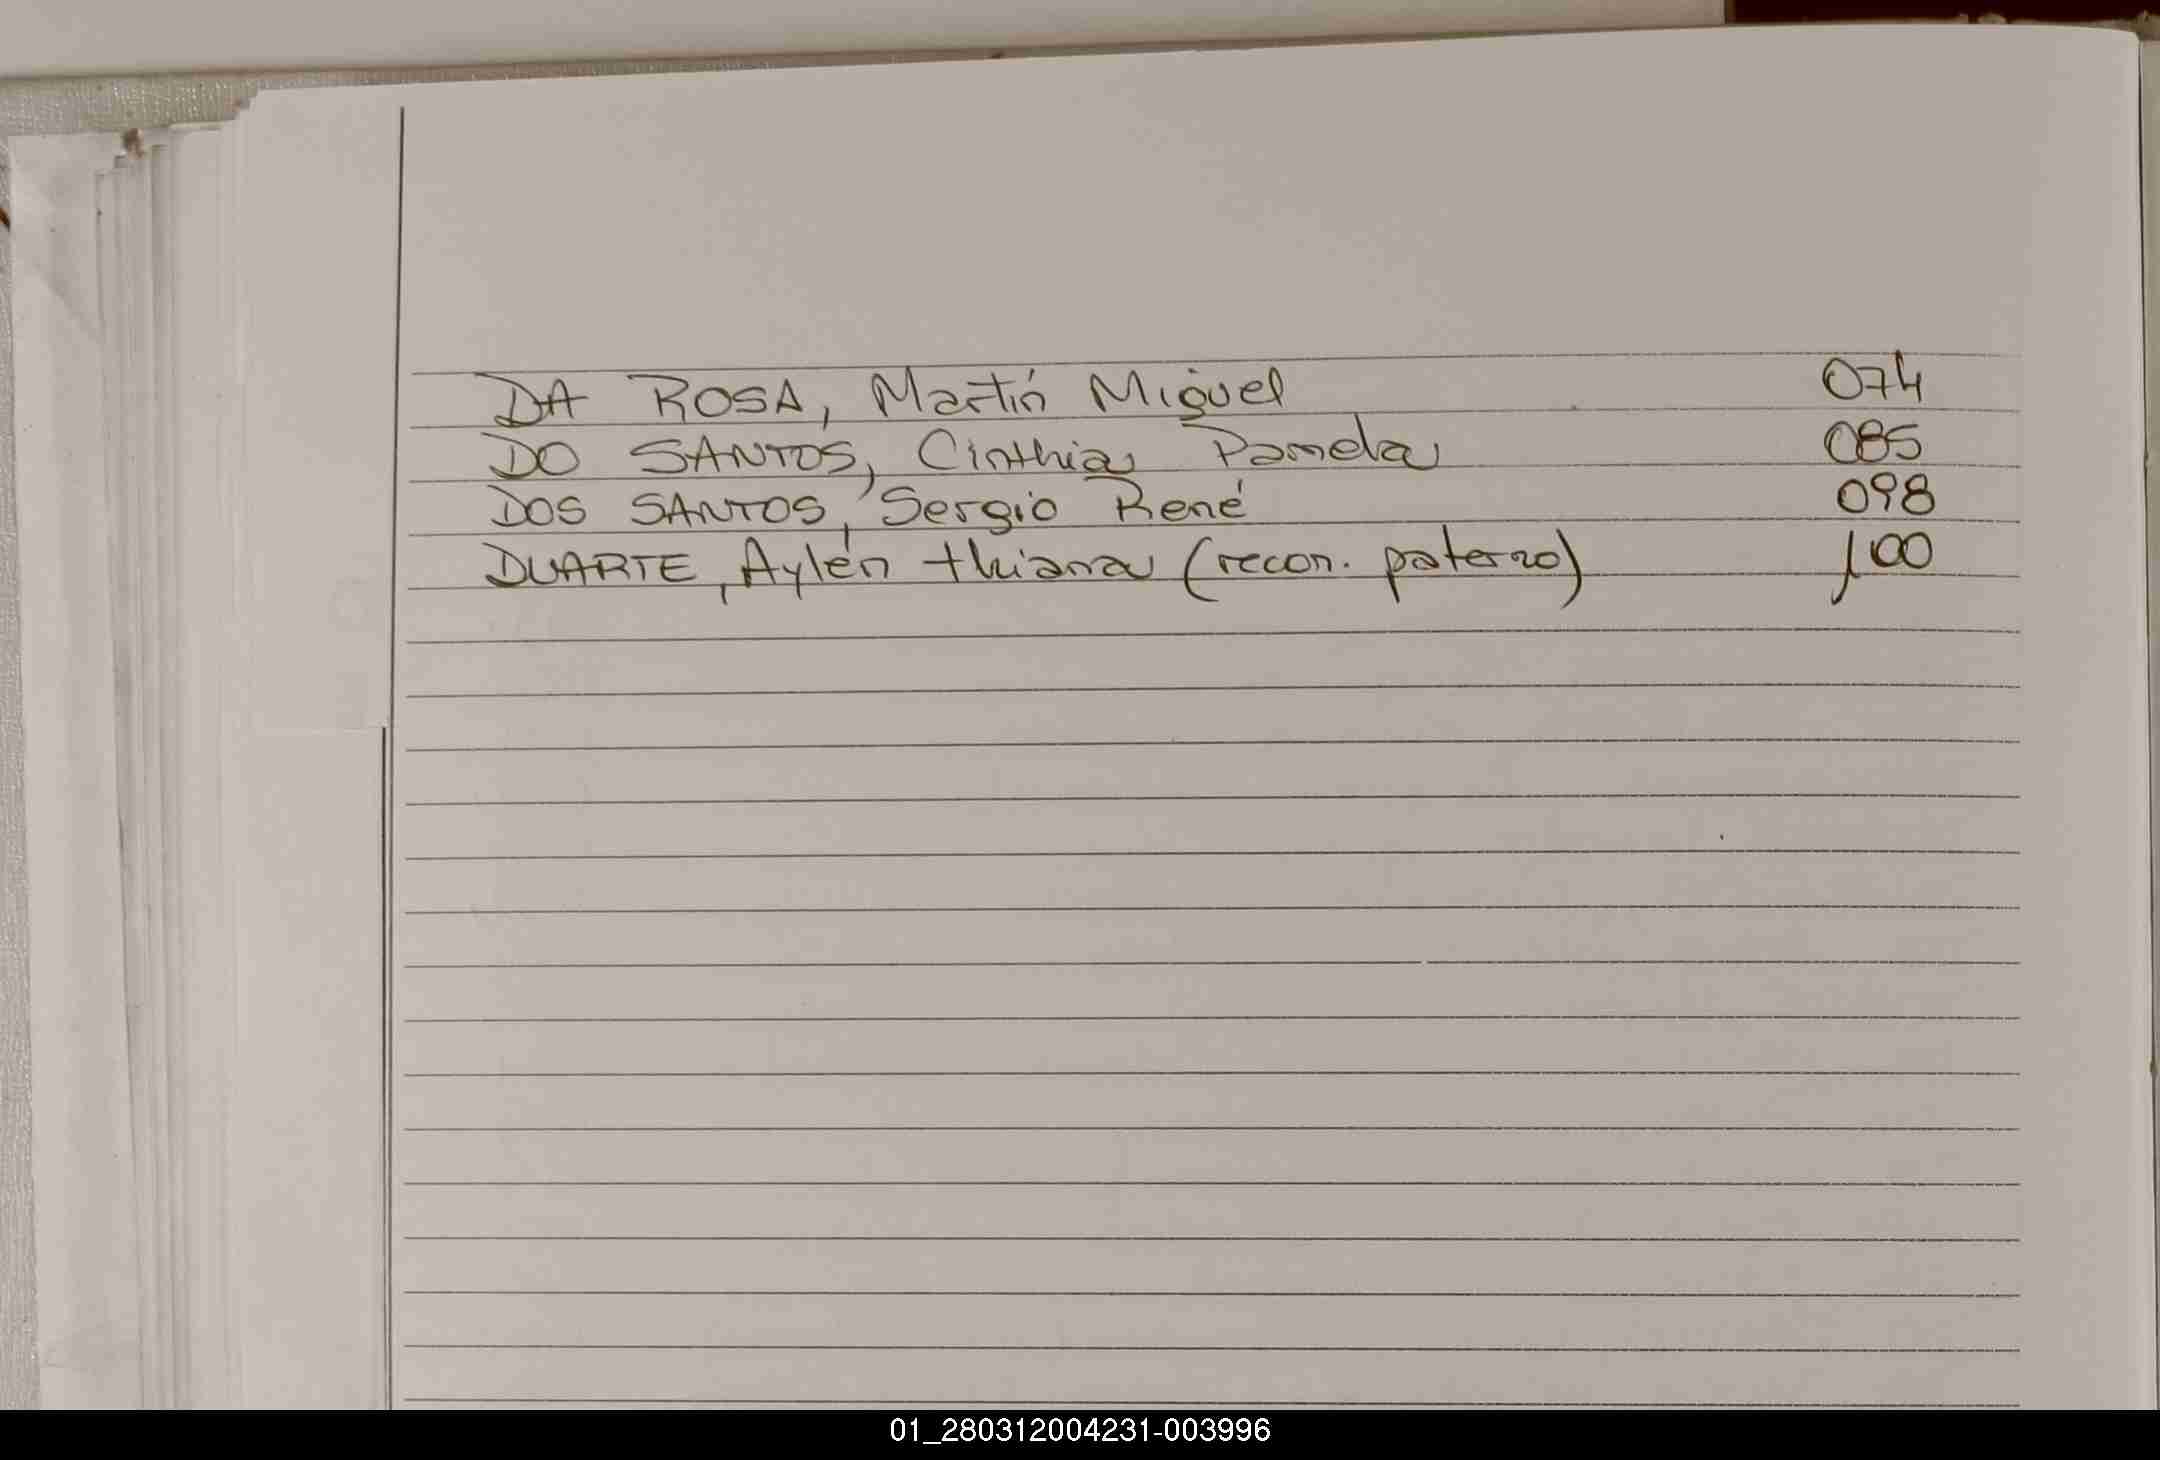 DA ROSA, Martín Miguel 074
DO SANTOS, Cinthia Pamela 085
DOS SANTOS, Sergio René 098
DUARTE, Aylén thiana (recon. paterno) 100
01_280312004231-003996